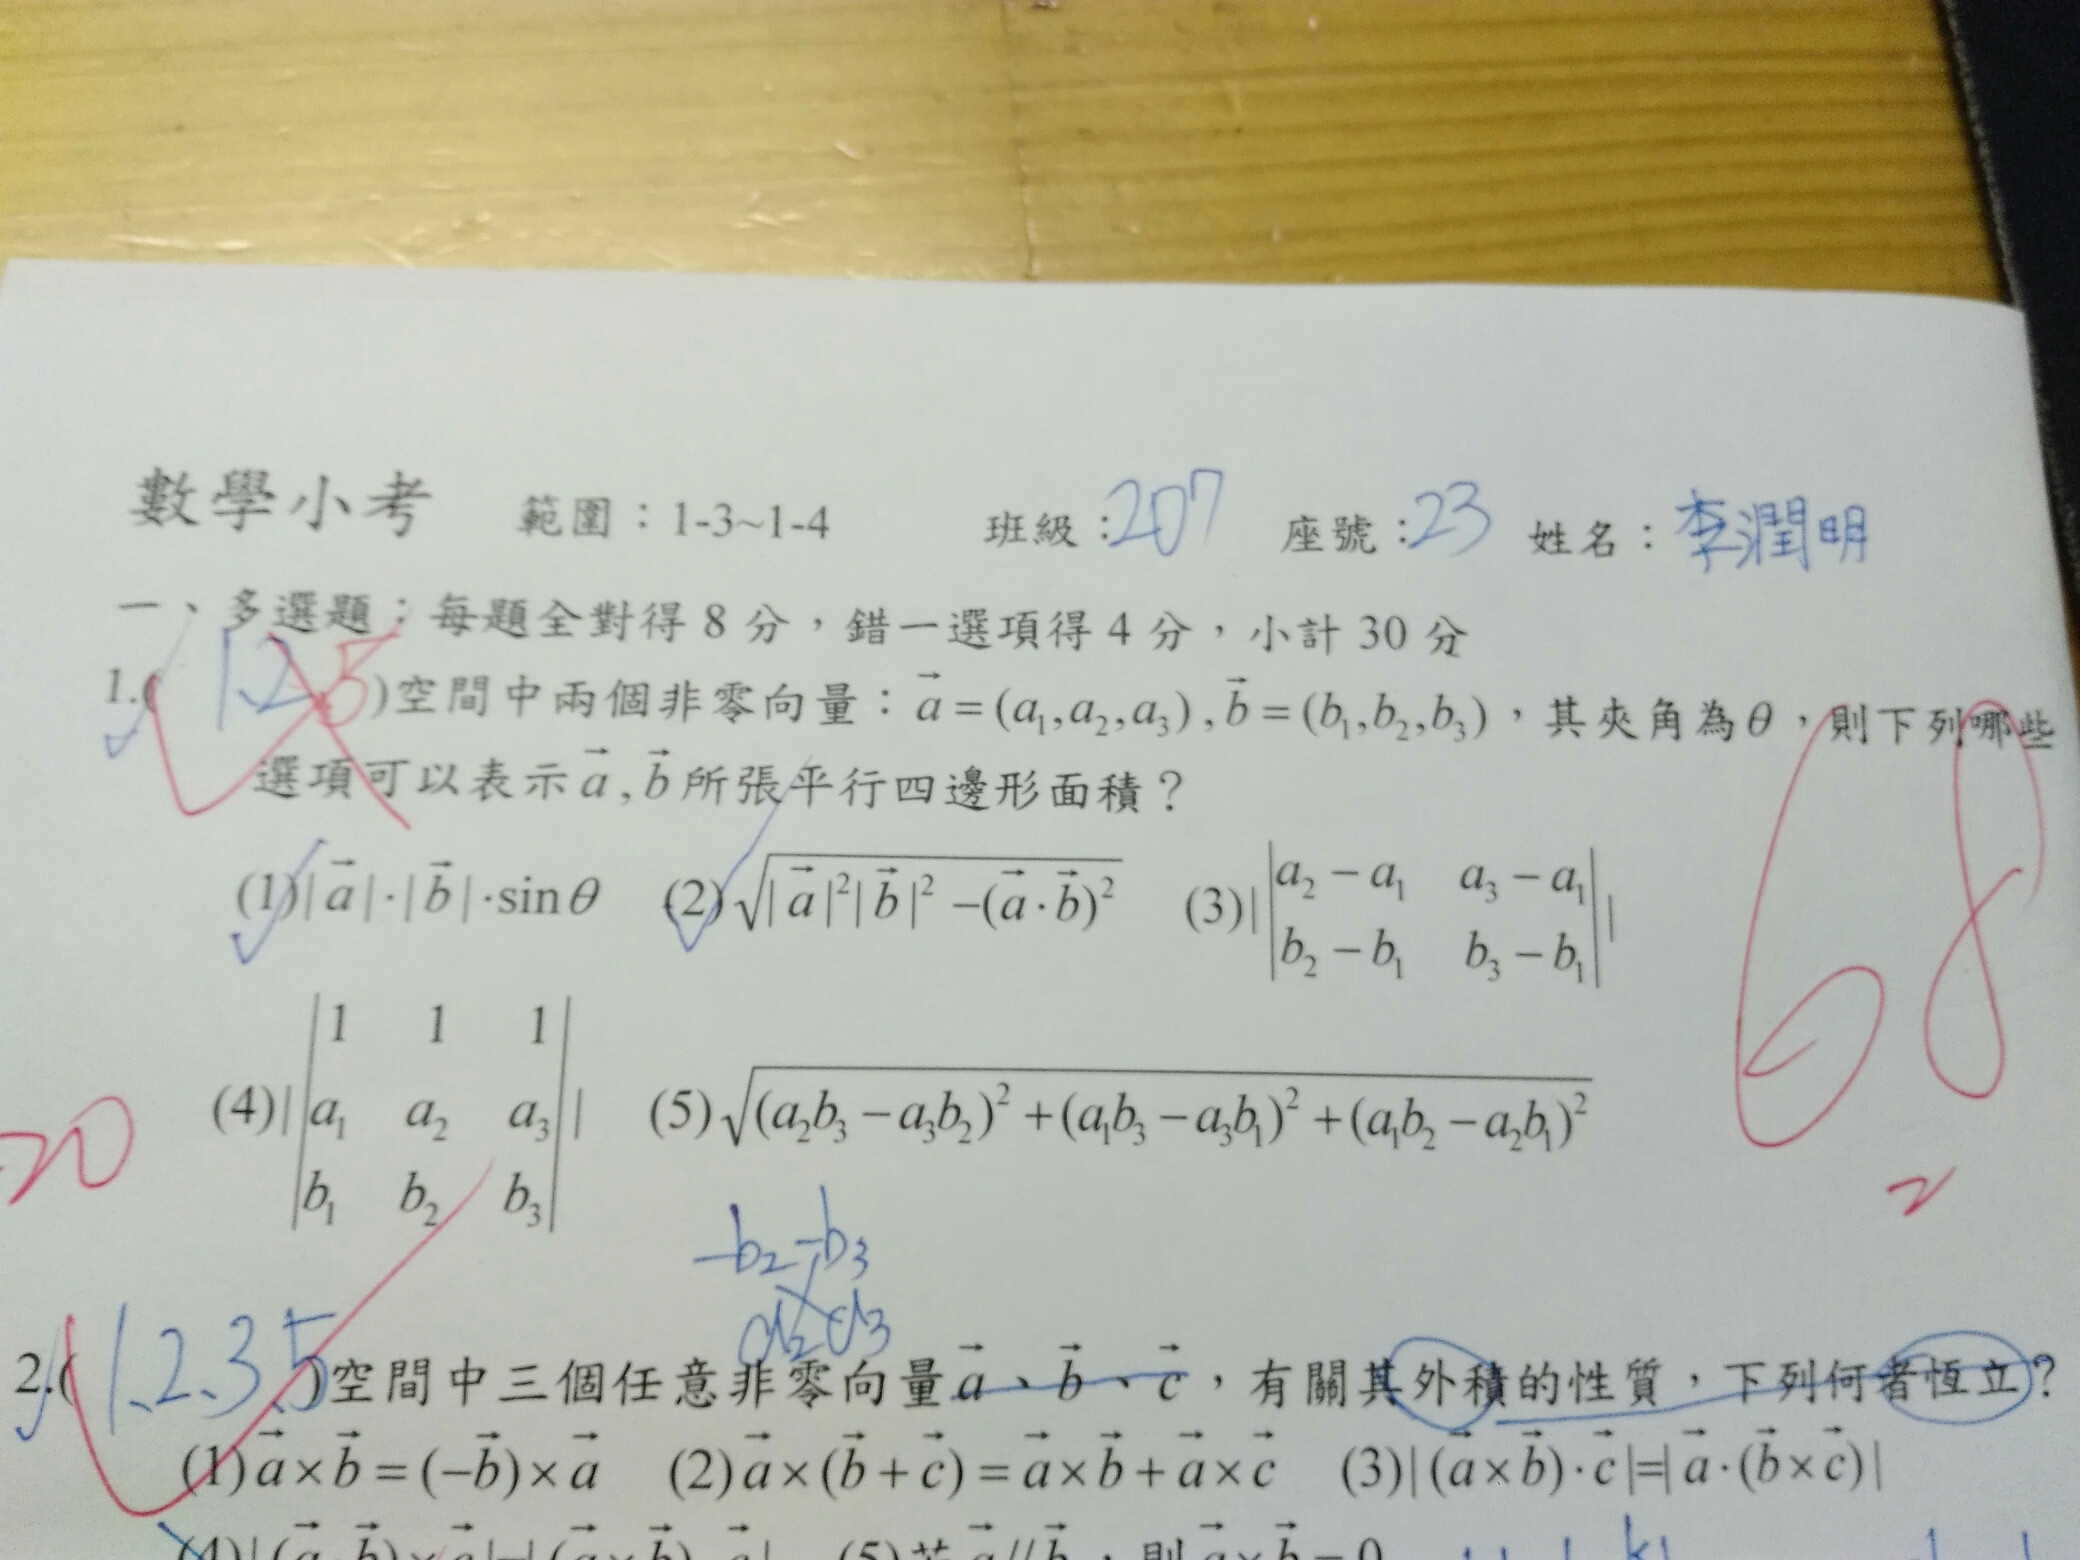 數學小考 範圍：1-3~1-4 班級：207 座號：23 姓名：李潤明
一、多選題：每題全對得 8 分，錯一選項得 4 分，小計 30 分
1.( 1.2 5 )空間中兩個非零向量：a⃗ = (a₁,a₂,a₃) , b⃗ = (b₁,b₂,b₃)，其夾角為θ，則下列哪些
選項可以表示 a⃗ , b⃗ 所張平行四邊形面積？
(1)| a⃗ |·| b⃗ |·sinθ (2)√(| a⃗ |²| b⃗ |² −(a⃗ · b⃗)²) (3)| |a₂ − a₁ a₃ − a₁|
|b₂ − b₁ b₃ − b₁| |
68
(4)| |1 1 1|
|a₁ a₂ a₃|
|b₁ b₂ b₃| | (5)√((a₂b₃ − a₃b₂)² + (a₁b₃ − a₃b₁)² + (a₁b₂ − a₂b₁)²)
-b₂ -b₃
a₂ a₃
2.( 1.2.3.5 )空間中三個任意非零向量 a⃗、b⃗、c⃗，有關其外積的性質，下列何者恆立？
(1) a⃗ × b⃗ = (−b⃗) × a⃗ (2) a⃗ × (b⃗ + c⃗) = a⃗ × b⃗ + a⃗ × c⃗ (3)| (a⃗ × b⃗) · c⃗ |=| a⃗ · (b⃗ × c⃗) |
(5)若 a⃗ // b⃗，則 a⃗ × b⃗ = 0